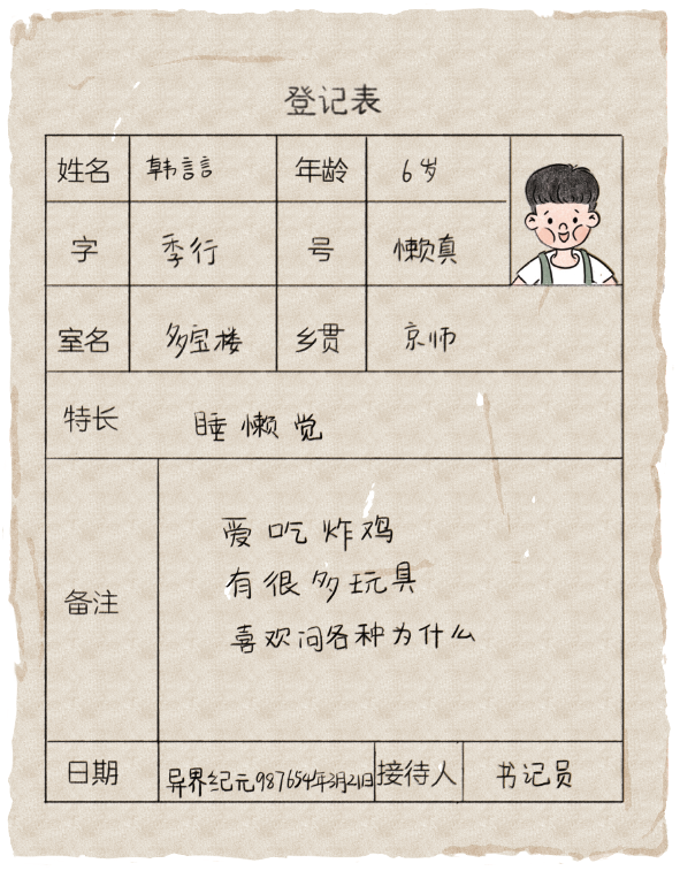 登记表
姓名 韩言言 年龄 6岁
字 季行 号 懒真
室名 多宝楼 乡贯 京师
特长 睡懒觉
爱吃炸鸡
有很多玩具
备注
喜欢问各种为什么
日期 异界纪元987654年3月21日 接待人 书记员